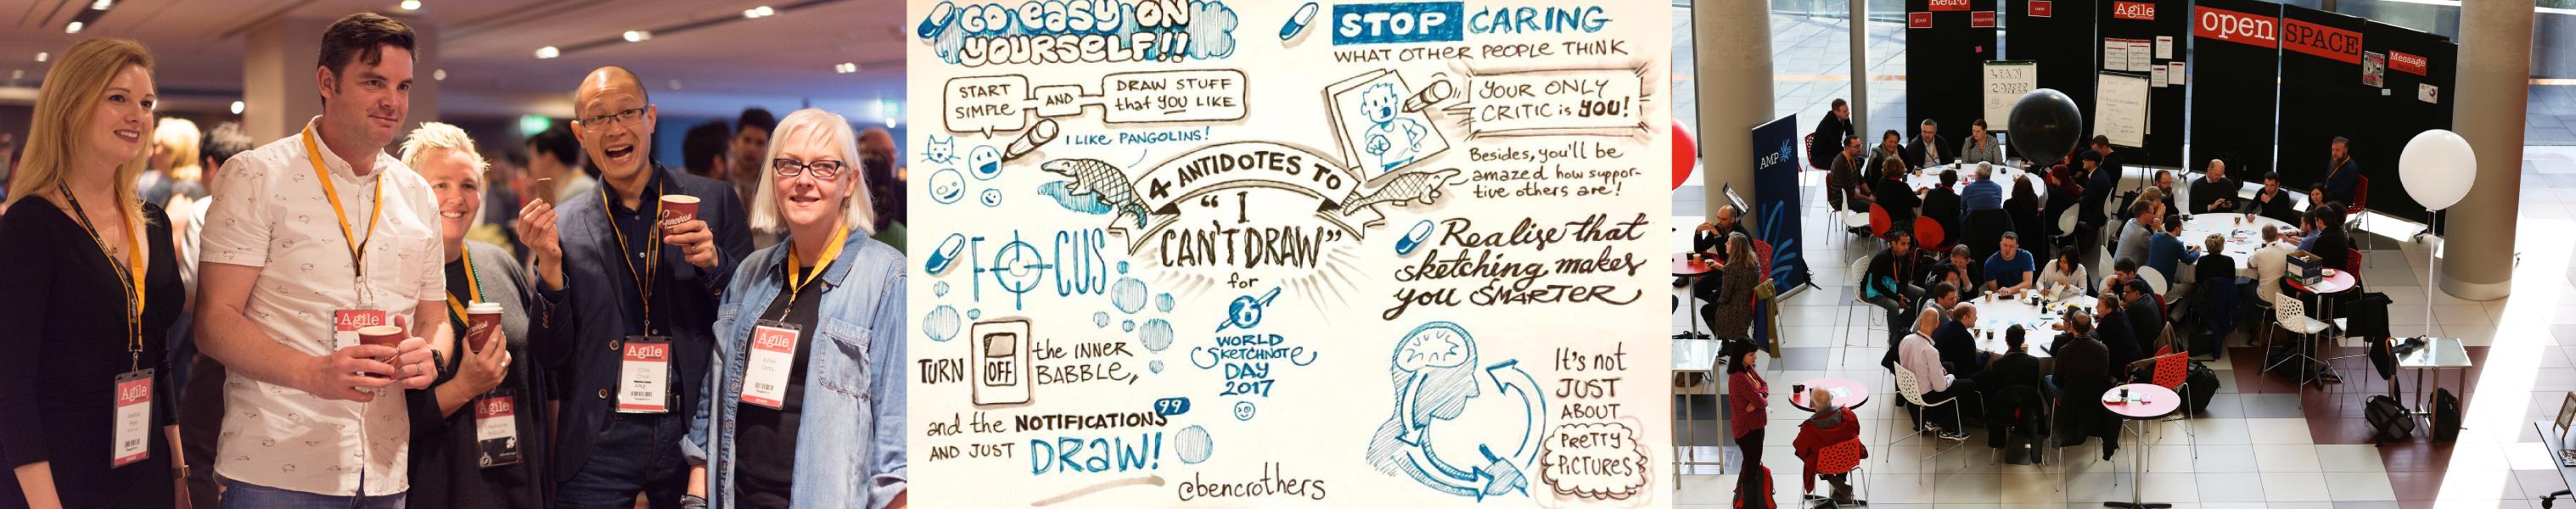 Agile
Agile
Agile
Agile
Agile
GO EASY ON
YOURSELF!!
START
SIMPLE
AND
DRAW STUFF
that YOU LIKE
I LIKE PANGOLINS!
FOCUS
TURN
OFF
the INNER
BABBLE,
and the NOTIFICATIONS
99
AND JUST
DRAW!
4 ANTIDOTES TO
"I
CAN'T DRAW"
for
WORLD
SKETCHNOTE
DAY
2017
@bencrothers
STOP CARING
WHAT OTHER PEOPLE THINK
YOUR ONLY
CRITIC is YOU!
Besides, you'll be
amazed how suppor-
tive others are!
Realise that
sketching makes
you SMARTER
It's not
JUST
ABOUT
PRETTY
PICTURES
AMP
Retro
good
Agile
open
SPACE
Message